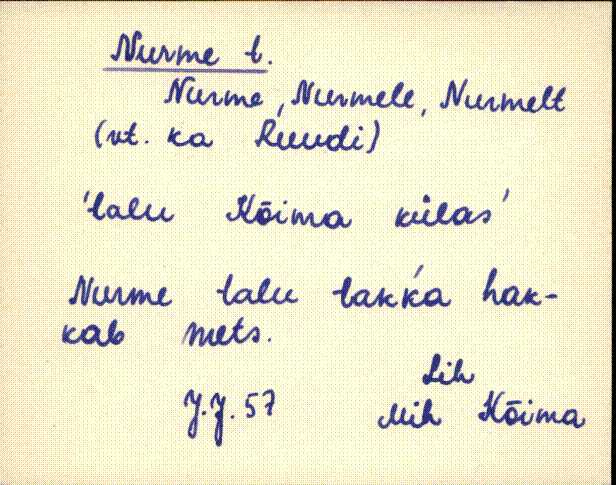 Nurme t.
Nurme, Nurmele, Nurmelt
(vt. ka Ruudi)
'talu Kõima külas'
Nurme talu takka hak-
kab mets.
Lih
J.J. 57 Mih Kõima